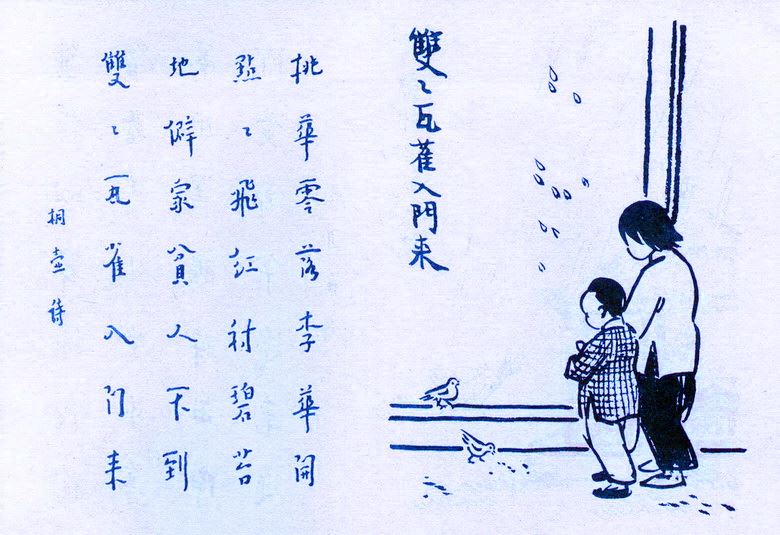 雙〻瓦雀入門來
桃華零落李華開
點〻飛紅衬碧苔
地僻家貧人不到
雙〻瓦雀入門來
桐壺詩